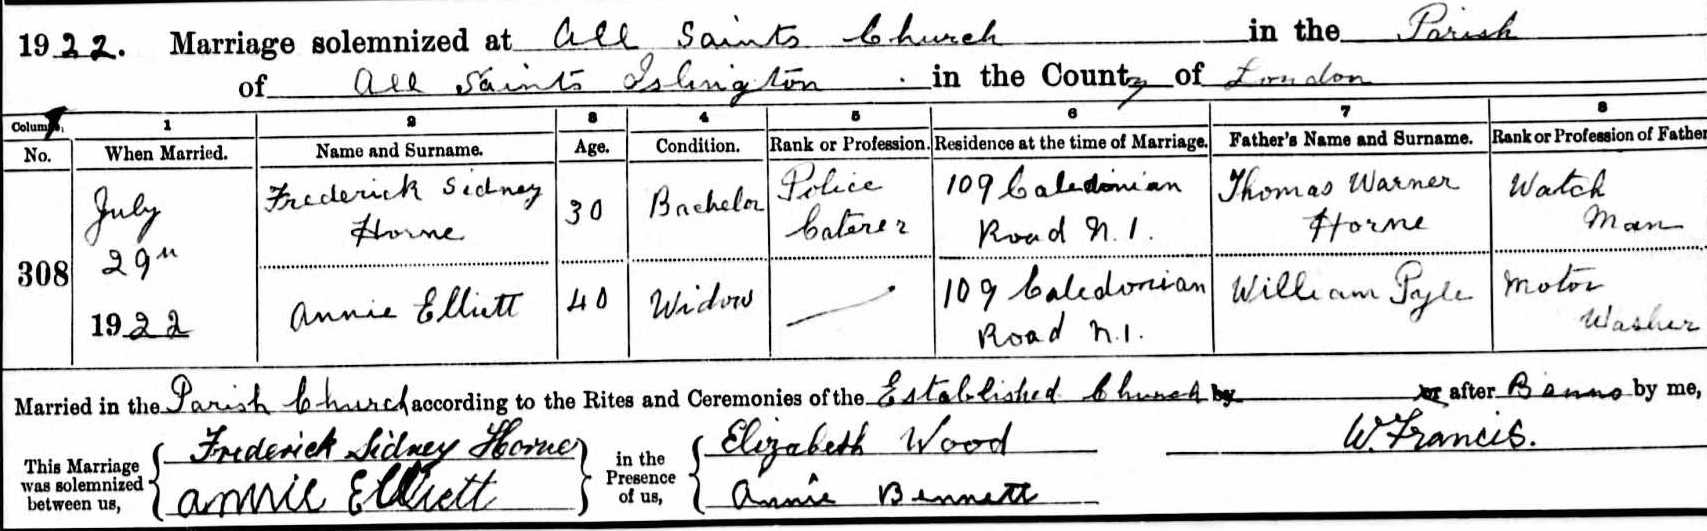 1922. Marriage solemnized at All Saints Church in the Parish
of All Saints Islington in the County of London
Columns. 1 2 3 4 5 6 7 8
No. When Married. Name and Surname. Age. Condition. Rank or Profession. Residence at the time of Marriage. Father's Name and Surname. Rank or Profession of Father
308
July
29th
1922
Frederick Sidney
Horne
30
Bachelor
Police
Caterer
109 Caledonian
Road N.1.
Thomas Warner
Horne
Watch
Man
Annie Elliett
40
Widow
109 Caledonian
Road N.1.
William Pyle
Motor
Washer
Married in the Parish Church according to the Rites and Ceremonies of the Established Church by or after Banns by me,
This Marriage
was solemnized
between us,
Frederick Sidney Horne
Annie Elliett
in the
Presence
of us,
Elizabeth Wood
Annie Bennett
W. Francis.